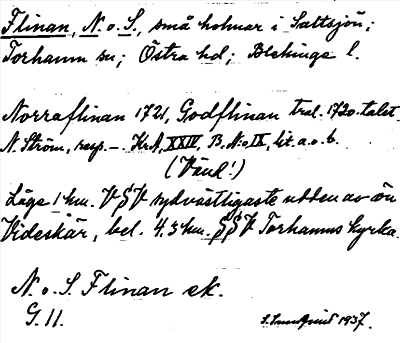 Flinan, N. o. S., små holmar i Saltsjön;
Torhamn sn; Östra hd; Blekinge l.
Norraflinan 1721, Godflinan trol. 1720-talet
N. Ström, resp. – KrA, XXIV, B. N:o IX, lit. a. o. b.
(Vänd!)
Låge 1 km. VSV sydvästligaste udden av ön
Videskär, bel. 4.3 km. SSV Torhamns kyrka.
N. o. S. Flinan ek.
G. 11.
1937.